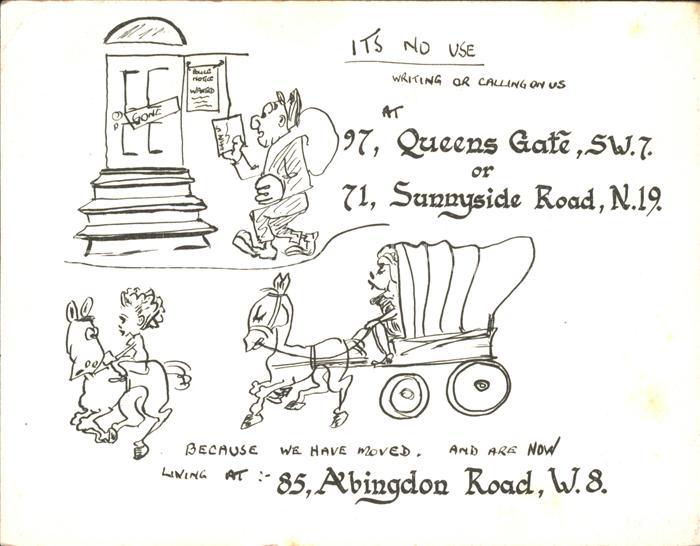 IT'S NO USE
WRITING OR CALLING ON US
AT
97, Queens Gate, S.W.7.
or
71, Sunnyside Road, N.19.
POLICE
NOTICE
WANTED
GONE
BECAUSE WE HAVE MOVED. AND ARE NOW
LIVING AT :- 85, Abingdon Road, W.8.